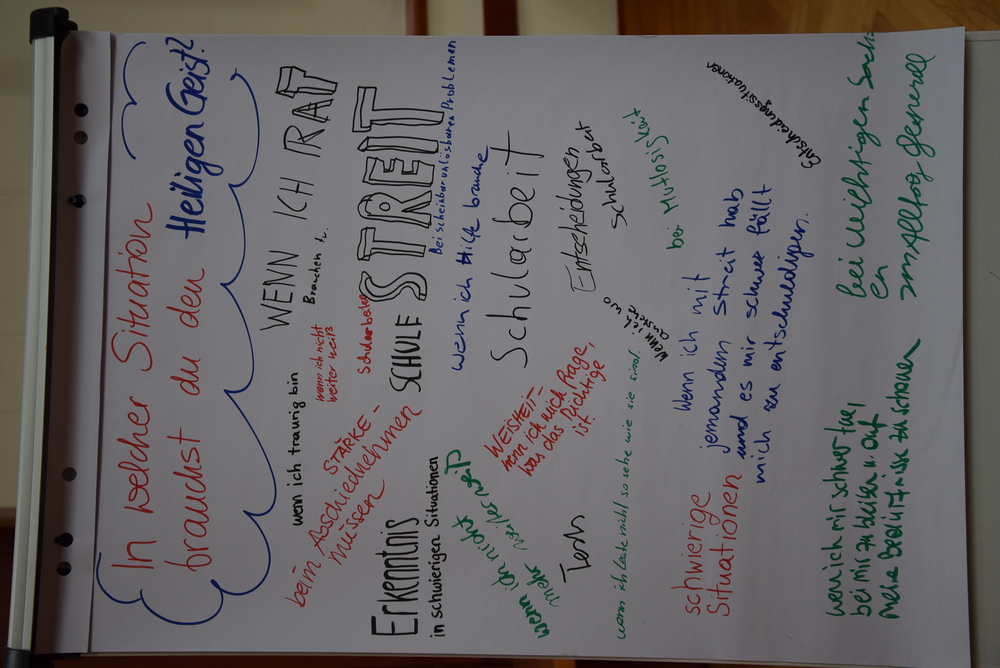 In welcher Situation
brauchst du den Heiligen Geist?
WENN ICH RAT
Brauchen
wenn ich traurig bin
wenn ich nicht
weiter weiß
STÄRKE -
beim Abschiednehmen
müssen
Schularbeiten
SCHULE STREIT
Bei scheinbar unlösbaren Problemen
wenn ich Hilfe brauche
Erkenntnis
in schwierigen Situationen
Schularbeit
WEISHEIT -
wenn ich mich frage,
was das Richtige
ist
wenn ich nicht
mehr weiter weiß
Entscheidungen
Schularbeit
Tests
wenn ich wo
anstehe
bei Mutlosigkeit
wenn ich Leute nicht so sehe wie sie sind.
schwierige
Situationen
Wenn ich mit
jemandem Streit hab
und es mir schwer fällt
mich zu entschuldigen.
Entscheidungssituationen
wenn ich mir schwer tue,
bei mir zu bleiben u. auf
meine Bedürfnisse zu schauen
bei wichtigen Sach
en
im Alltag generell